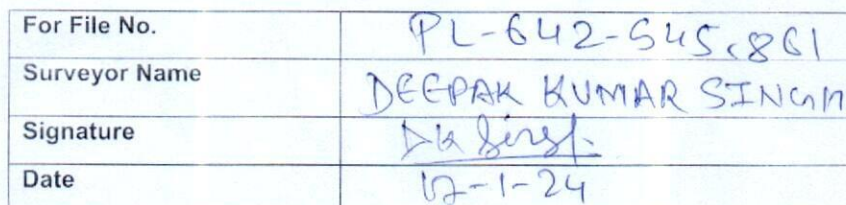 For File No. PL-642-545,861
Surveyor Name DEEPAK KUMAR SINGH
Signature DK Singh.
Date 17-1-24